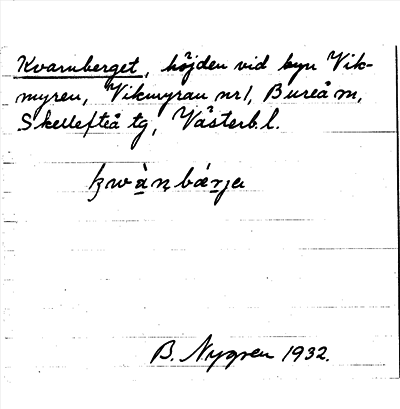 Kvarnberget, höjden vid byn Vik-
myren, Vikmyran nr 1, Bureå sn,
Skellefteå tg, Västerb. l.
B. Nygren 1932.